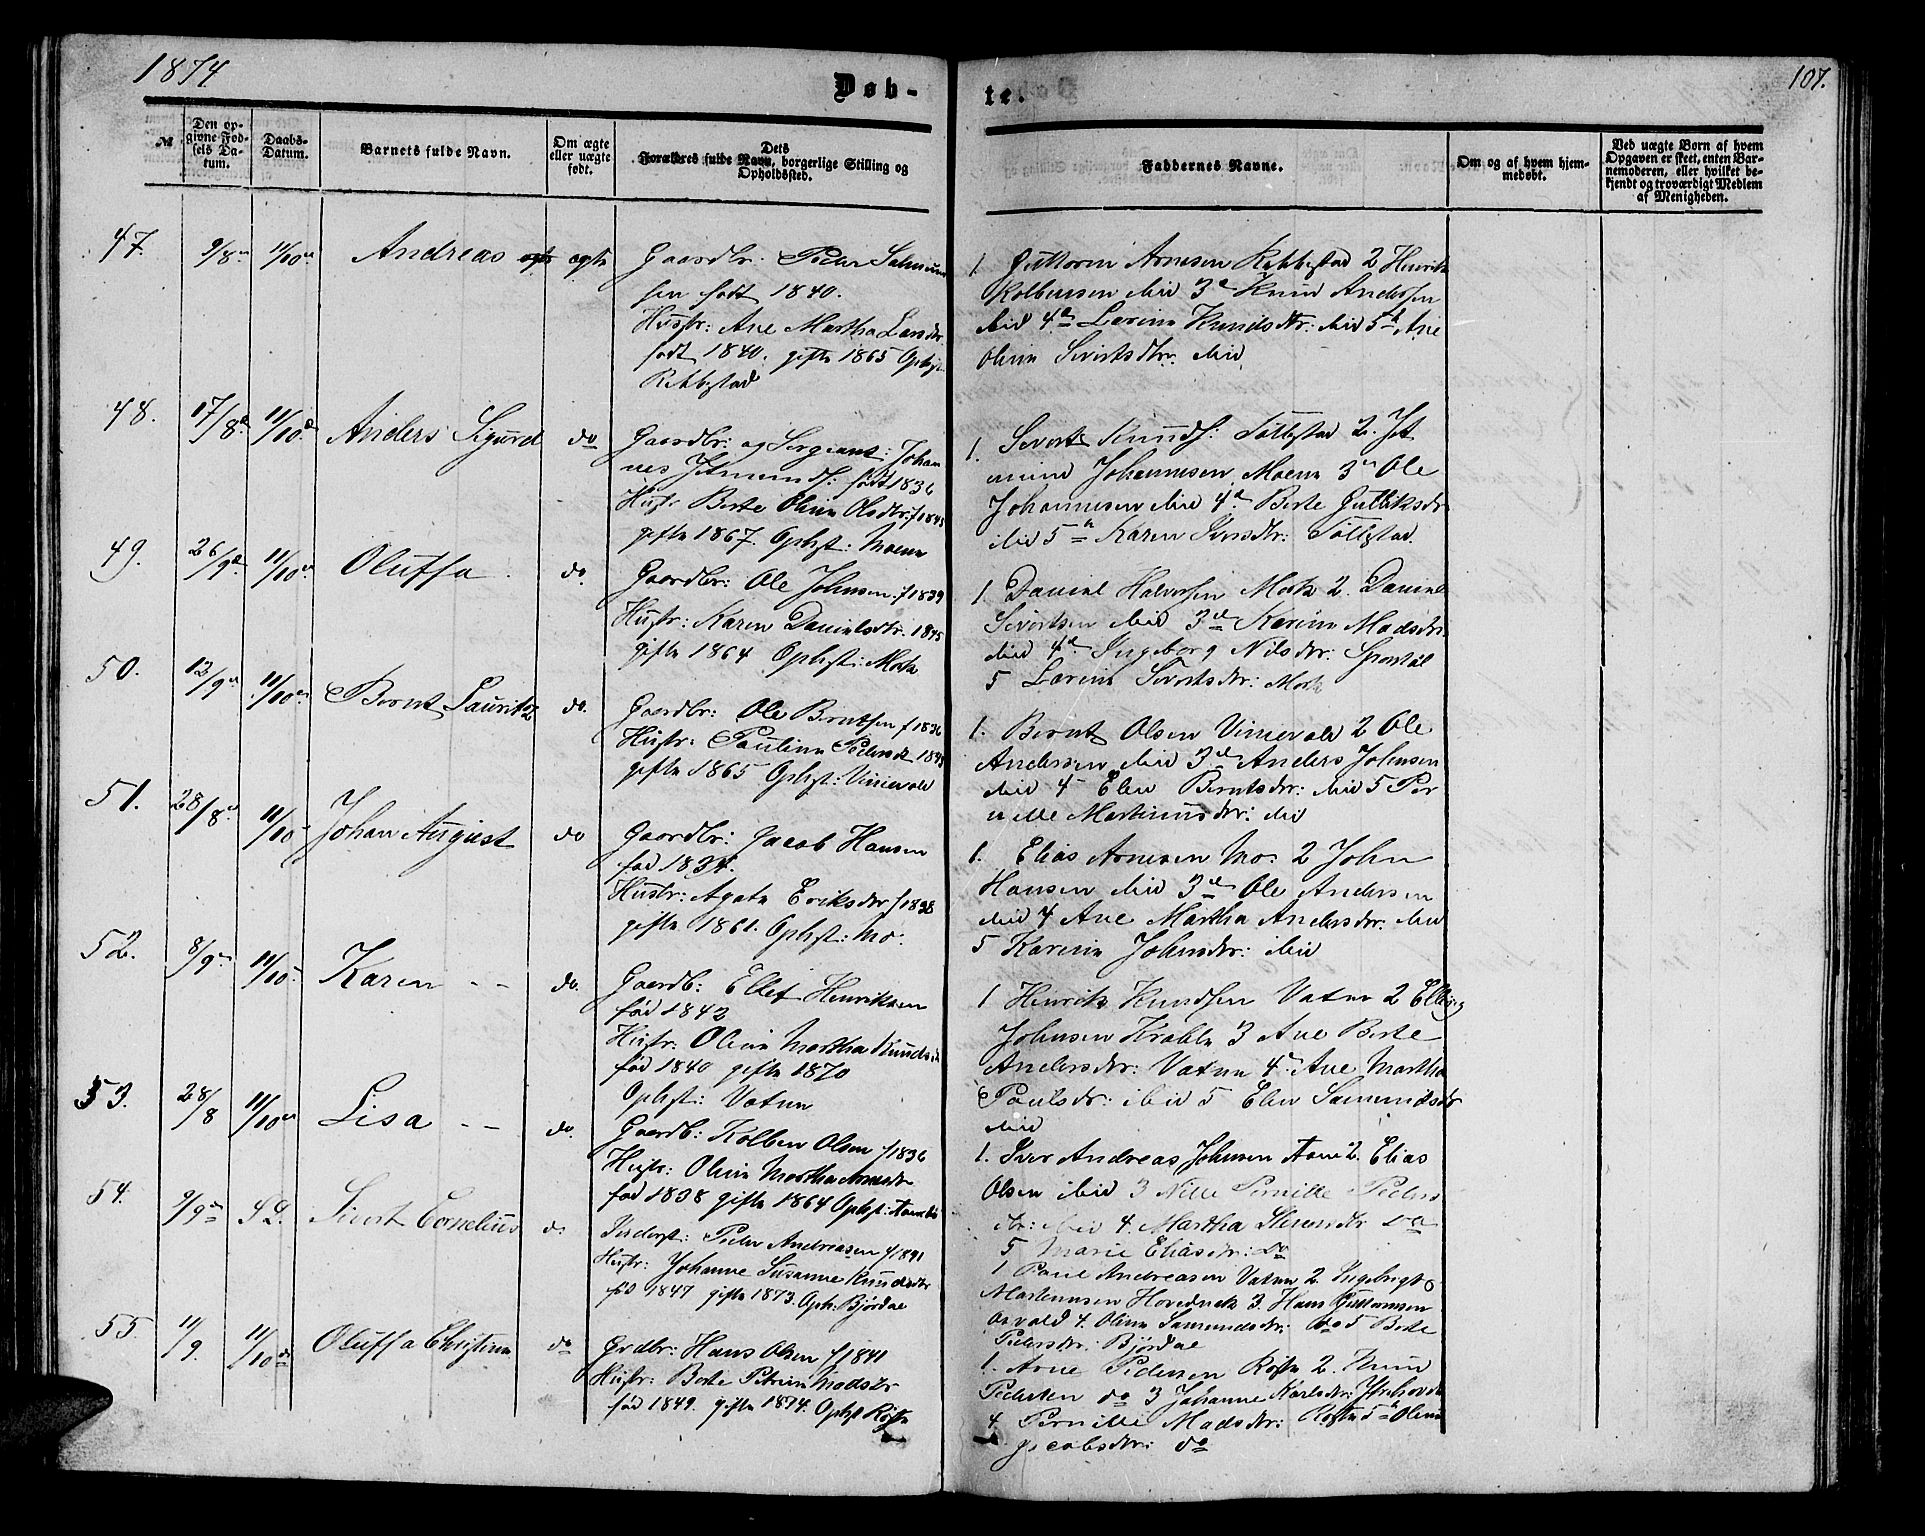 1874
Døb-
№
Den op-
givne Fød-
sels Da-
tum.
Daabs-
Datum.
Barnets fulde Navn.
Om ægte
eller uægte
født.
Dets
Forældres fulde Navn, borgerlige Stilling og
Opholdssted.
47. 9/8 11/10 Andreas ægte
Gaardbr: Peder
født 1840.
Hustr: Ane Martha Larsdtr
født 1840. gifte 1865 Ophst
Rekkestad
48. 17/8 11/10 Anders Sigurd do
Gaardbr: og Sergeant: Johan
nes Jetmunds: født 1836
Hustr Berte Oline Olsdtr: f 1845
gifte 1867. Ophst: Moene
49. 26/9 11/10 Oluffa do.
Gaardbr: Ole Johnsen f 1839
Hustr: Karen Danielsdtr. 1845
gifte 1864 Ophst: Mork
50. 12/9 11/10 Bernt Lauritz do.
Gaardbr: Ole Berntsen f 1836
Hustr: Pauline Pedersdt
gifte 1865 Ophst: Vinjevold
51. 28/8 11/10 Johan August do
Gaardbr: Jacob Hansen
fød 1834.
Hustr: Agate Eriksdtr f 1838
gifte 1861. Ophst: Mo.
52. 8/9 11/10 Karen - - do.
Gaardb: Ellef Henriksen
fød 1842
Hustr: Oline Martha Knudsd
fød 1840 gifte 1870
Ophst: Vatne
53. 28/8 11/10 Lisa - - do.
Gaardb: Kolben Olsen f 1836
Hustr: Oline Martha Arnesdtr
fød 1838 gifte 1864 Ophst:
54. 9/9 S D. Sivert Cornelius do
Inderst: Peder Andreasen f 1841
Hustr: Johanne Susanne Knudsdtr
fød 1847 gifte 1873. Oph: Bjørdal
55 11/9. 11/10 Oluffa Christine do
Grdbr: Hans Olsen f 1841
Hustr: Berte Petrine Madsdtr
fød 1849. gifte 1874. Ophst
107.
te.
Faddernes Navne.
Om og af hvem hjem-
medøbt.
Ved uægte Børn af hvem
Opgaven er skeet, enten Bar-
nemoderen, eller hvilket be-
kjendt og troværdigt Medlem
af Menigheden.
1. Guttorm Arnesen Rekkestad 2 Henrik
Kolbensen ibid 3 Knud Andersen
ibid 4 Lovine Knudsdtr: ibid 5 Ane
Oline Sivertsdtr: ibid
1. Sivert Knuds: 2. Jet
mund Johannesen Moene 3 Ole
Johannesen ibid 4 Berte Gulliksdtr
ibid 5 Karen Iversdtr:
1. Daniel Halvorsen Mork 2. Daniel
Sivertsen ibid 3 Karine Madsdtr
ibid 4 Ingeborg Nilsdtr:
5 Lovine Sivertsdtr: Mork
1. Bernt Olsen Vinjevold 2 Ole
Andersen ibid 3 Anders Johnsen
ibid 4 Elen Berntsdtr: ibid 5 Per
nille Martinusdtr: ibid
1. Elias Arnesen Mo. 2 John
Hansen ibid 3 Ole Andersen
ibid 4 Ane Martha Andersdtr. ibid
5 Karine Johnsdtr: ibid
1 Henrik Knudsen Vatne 2 Elling
Johnsen Krabbe 3 Ane Berte
Andersdtr: Vatne 4 Ane Martha
Paulsdtr: ibid 5 Elen Samundsdtr
ibid
1. Iver Andreas Johnsen 2. Elias
Olsen ibid 3 Nille Pernille Peders
dtr: ibid 4. Martha Steensdtr do
5 Marie Eliasdtr: do
1 Paul Andreasen Vatne 2. Ingebrigt
Martinusen 3. Hans Guttormsen
4. Oline Samundsdtr: do 5 Berte
Pedersdtr: Bjørdal
1. Arne Pedersen 2. Knud
Pedersen do 3 Johanne Karlsdtr:
4 Pernille Madsdtr: 5 Oline
Jacobsdtr: do